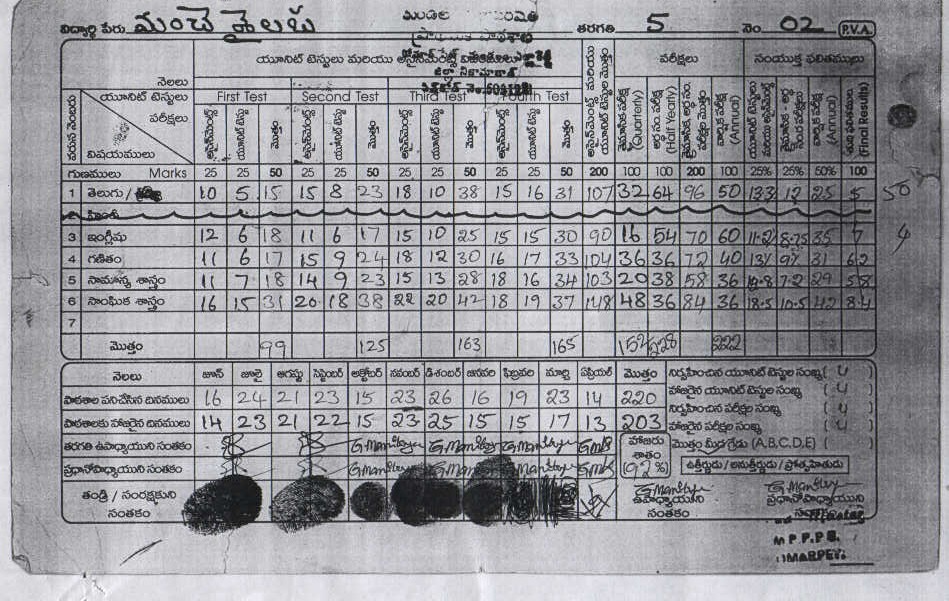 విద్యార్థి పేరు మంచె శైలజ తరగతి 5 నెం. 02 P.V.A.
యూనిట్ టెస్టులు మరియు అసైన్‌మెంట్ల పరీక్షలు సంయుక్త ఫలితములు
నెలలు
యూనిట్ టెస్టులు First Test Second Test Third Test Fourth Test
పరీక్షలు
విషయములు
అసైన్‌మెంట్స్ యూనిట్ టెస్టు మొత్తం అసైన్‌మెంట్స్ యూనిట్ టెస్టు మొత్తం అసైన్‌మెంట్స్ యూనిట్ టెస్టు మొత్తం అసైన్‌మెంట్స్ యూనిట్ టెస్టు మొత్తం (Quarterly) (Half Yearly) (Annual) (Annual) (Final Results)
గుణములు Marks 25 25 50 25 25 50 25 25 50 25 25 50 200 100 100 200 100 25% 25% 50% 100
1 తెలుగు / 10 5 15 15 8 23 18 10 38 15 16 31 107 32 64 96 50 13.3 12 25 5 50
హిందీ
3 ఇంగ్లీషు 12 6 18 11 6 17 15 10 25 15 15 30 90 16 54 70 60 11.2 8.75 35 7
4 గణితం 11 6 17 15 9 24 18 12 30 16 17 33 104 36 36 72 40 31 62
5 సామాన్య శాస్త్రం 11 7 18 14 9 23 15 13 28 18 16 34 103 20 38 58 36 7.2 29 58
6 సాంఘిక శాస్త్రం 16 15 31 20 18 38 22 20 42 18 19 37 148 48 36 84 36 18.5 10.5 42 84
7
మొత్తం 99 125 163 165 152 228 222
నెలలు జూన్ జూలై ఆగష్టు సెప్టెంబర్ అక్టోబర్ నవంబర్ డిశంబర్ జనవరి ఫిబ్రవరి మార్చి ఏప్రియల్ మొత్తం నిర్వహించిన యూనిట్ టెస్టుల సంఖ్య ( 4 )
పాఠశాల పనిచేసిన దినములు 16 24 21 23 15 23 26 16 19 23 14 220 హాజరైన యూనిట్ టెస్టుల సంఖ్య ( 4 )
నిర్వహించిన పరీక్షల సంఖ్య ( 4 )
పాఠశాలకు హాజరైన దినములు 14 23 21 22 15 23 25 15 15 17 13 203 హాజరైన పరీక్షల సంఖ్య ( 4 )
తరగతి ఉపాధ్యాయుని సంతకం హాజరు మొత్తం మీద గ్రేడు (A.B.C.D.E) ( )
ప్రధానోపాధ్యాయుని సంతకం శాతం (92%) ఉత్తీర్ణుడు / అనుత్తీర్ణుడు / ప్రోత్సహితుడు
తండ్రి / సంరక్షకుని సంతకం ఉపాధ్యాయుని సంతకం ప్రధానోపాధ్యాయుని
M P P P S.